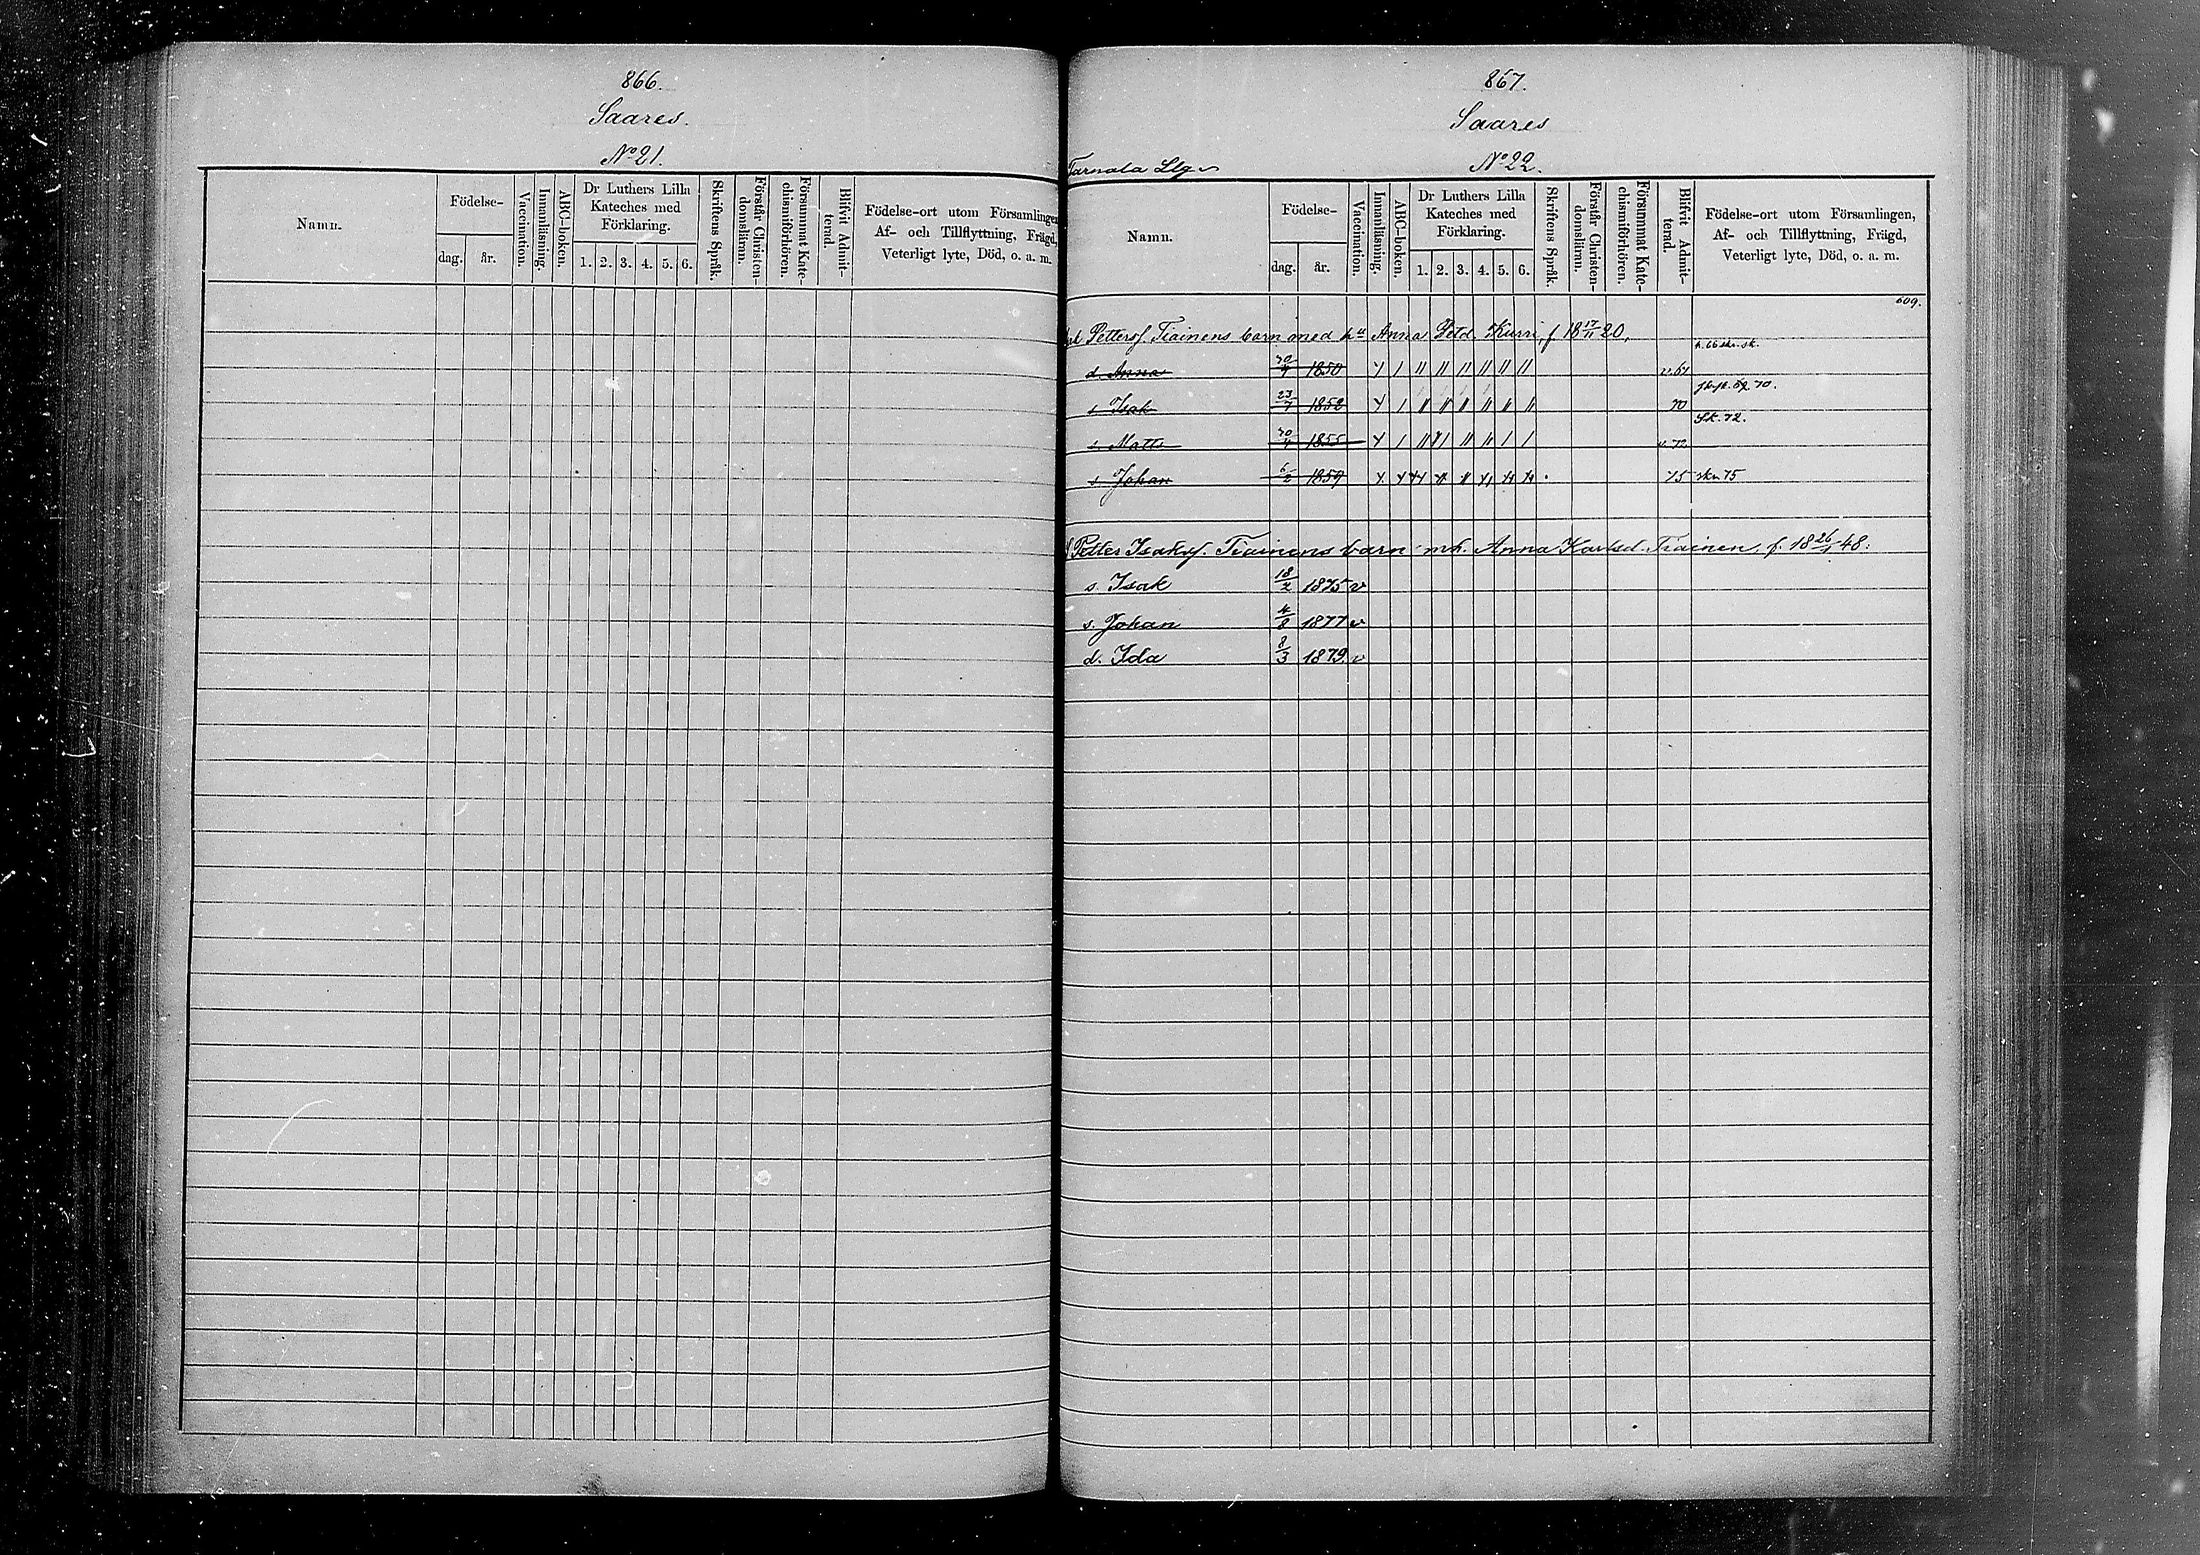 866.
Saares.
No 21.
Namn.
Födelse-
dag. år.
Vaccination.
Innanläsning.
ABC-boken.
Dr Luthers Lilla
Kateches med
Förklaring.
1. 2. 3. 4. 5. 6.
Skriftens Språk.
Förstår Christen-
domsläran.
Försummat Kate-
chismiförhören.
Blifvit Admit-
terad.
Födelse-ort utom Församlingen,
Af- och Tillflyttning, Frägd,
Veterligt lyte, Död, o. a. m.
867.
Saares
No 22.
Namn.
Födelse-
dag. år.
Vaccination.
Innanläsning.
ABC-boken.
Dr Luthers Lilla
Kateches med
Förklaring.
1. 2. 3. 4. 5. 6.
Skriftens Språk.
Förstår Christen-
domsläran.
Försummat Kate-
chismiförhören.
Blifvit Admit-
terad.
Födelse-ort utom Församlingen,
Af- och Tillflyttning, Frägd,
Veterligt lyte, Död, o. a. m.
609.
Petterss. Tiainens barn med hu Anna Kurri, f 18 17/11 20,
d. Anna 1850
s. Isak 23/7 1852 70
s. Matts 1855 72 Sk. 72.
s. Johan 6/2 1859 75 skr 75
Petter Isakss. Tiainens barn mh. Anna Karlsd. Tiainen, f. 18 26/1 48:
s. Isak 18/2 1875 v
s. Johan 4/8 1877 v
d. Ida 8/3 1879. v